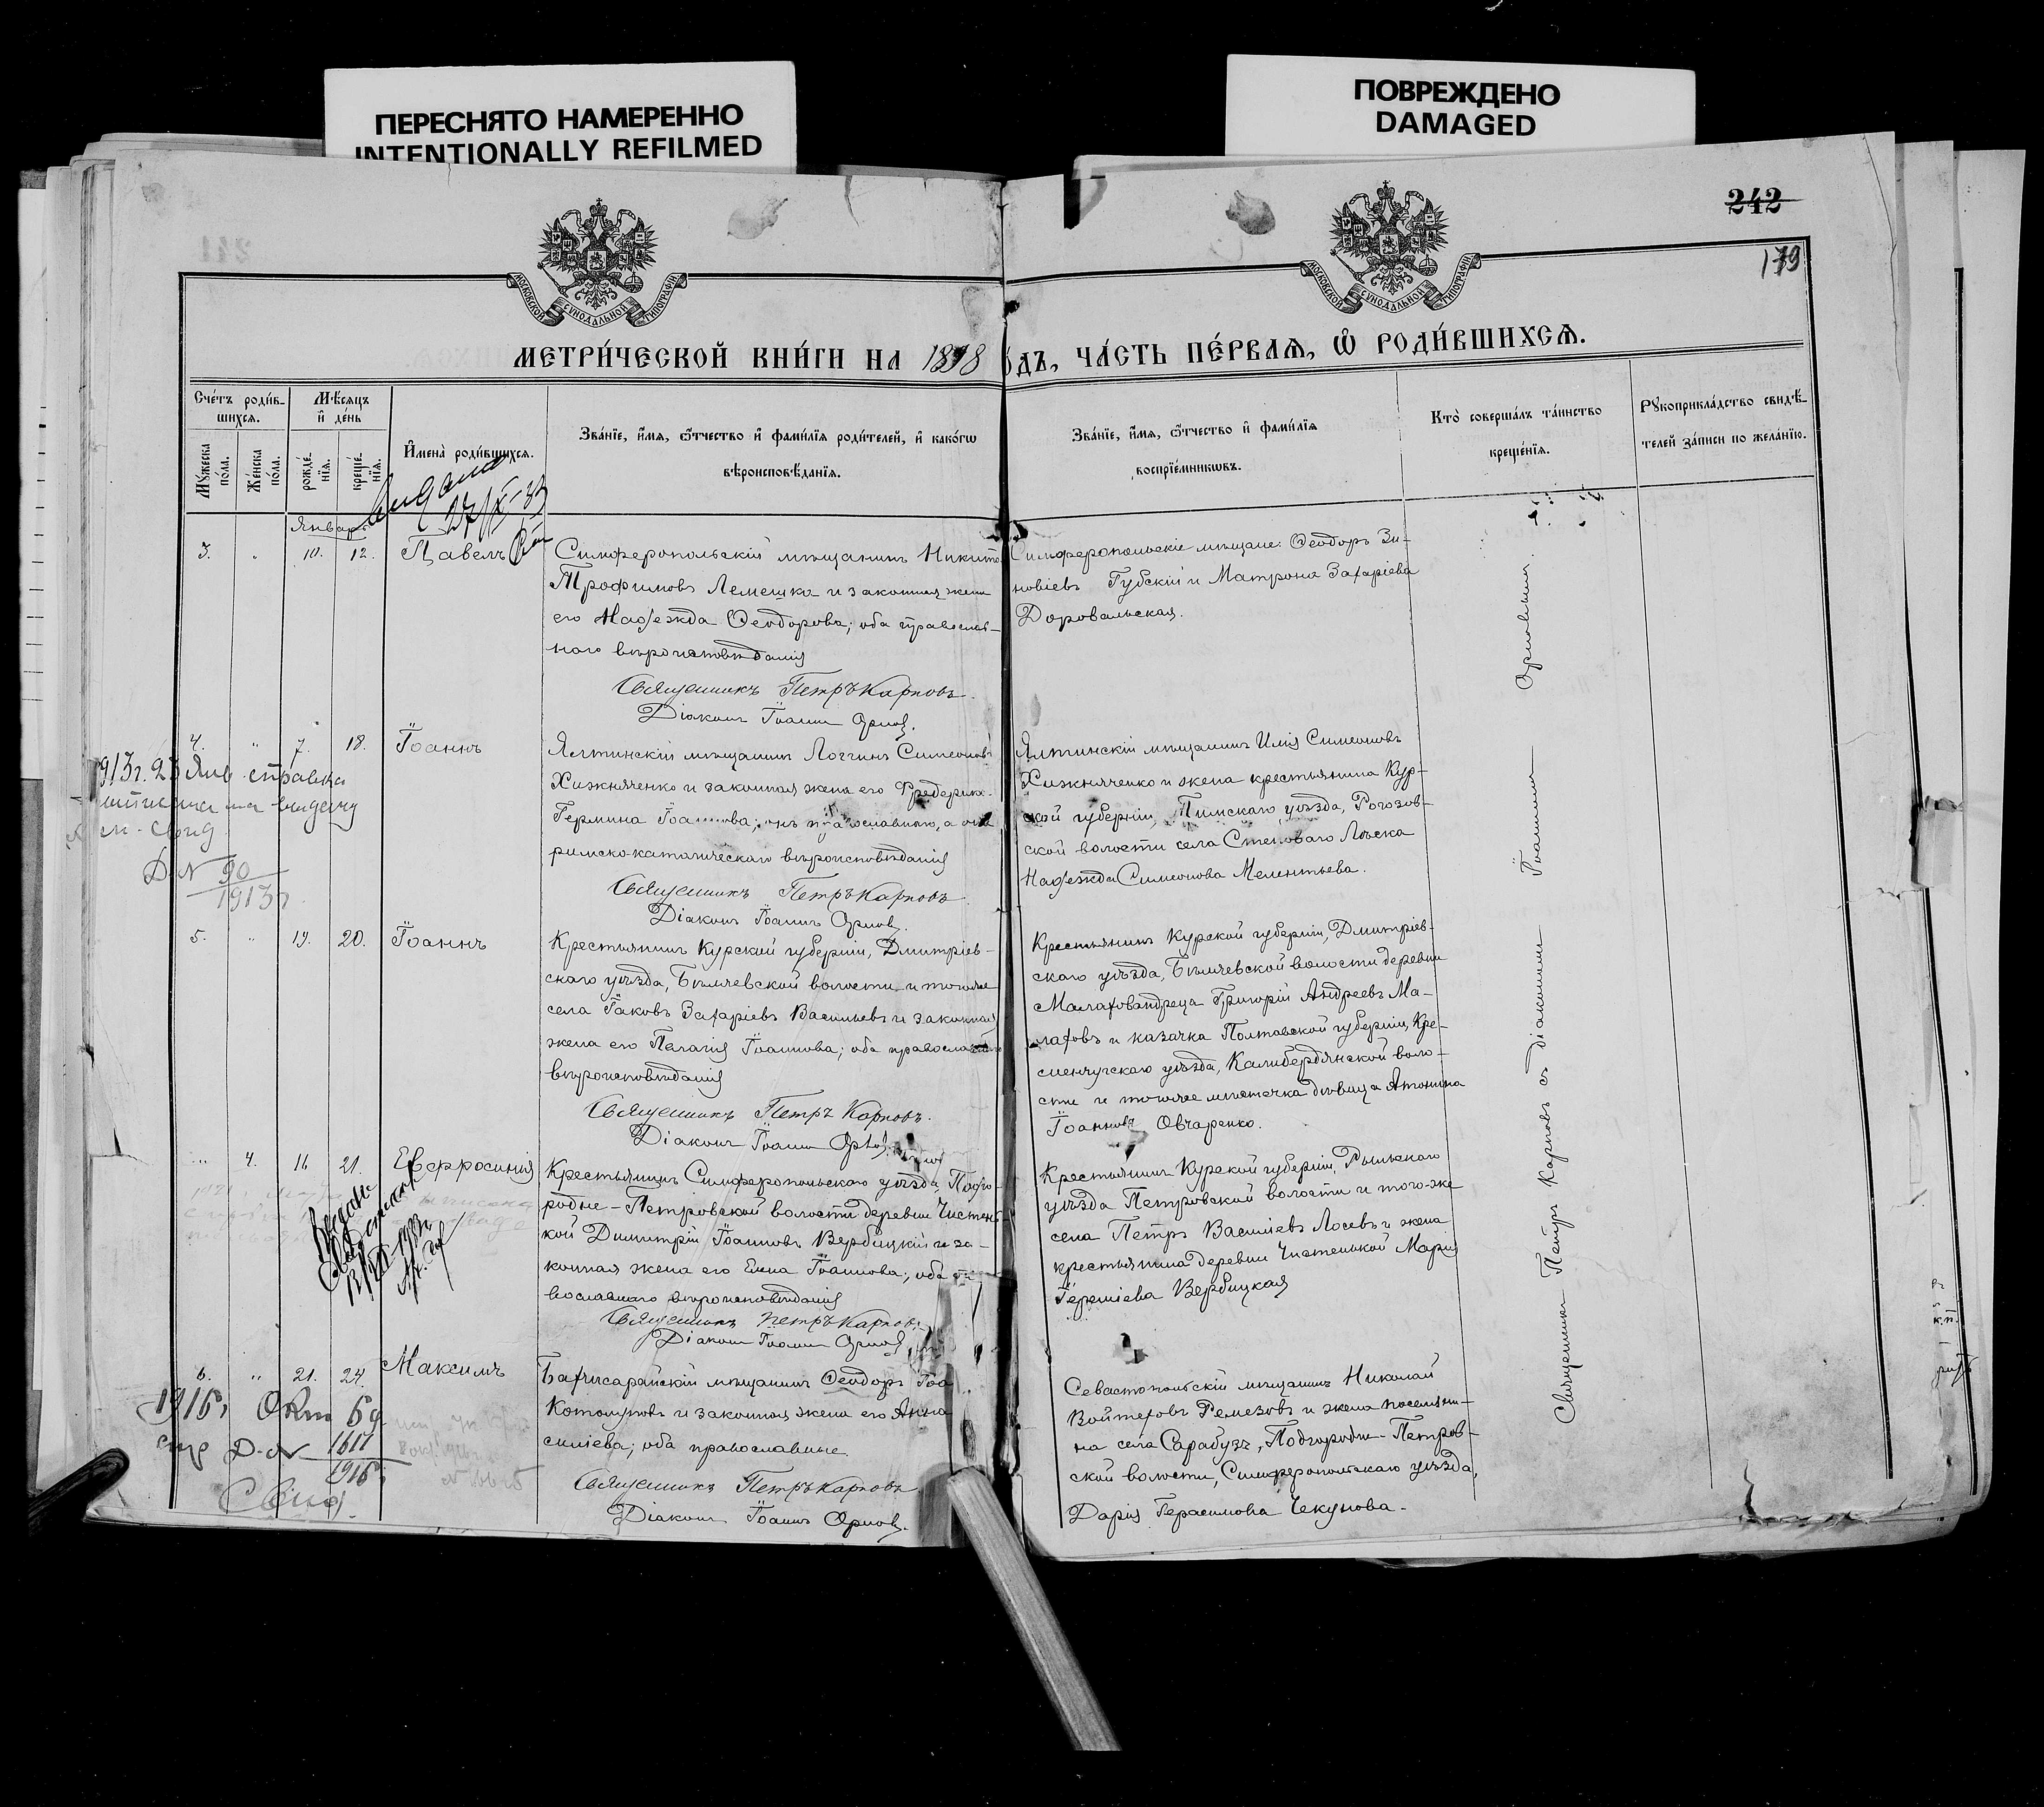 ПЕРЕСНЯТО НАМЕРЕННО
INTENTIONALLY REFILMED
ПОВРЕЖДЕНО
DAMAGED
242
179
МОСКОВСКОЙ СѴНОДАЛЬНОЙ ТИПОГРАФІИ
МОСКОВСКОЙ СѴНОДАЛЬНОЙ ТИПОГРАФІИ
МЕТРИ́ЧЕСКОЙ КНИ́ГИ НА 1898
О́ДЪ, ЧА́СТЬ ПЕ́РВАѦ, Ѽ РОДИ́ВШИХСѦ.
Сче́тъ роди́в-
шихсѧ.
Мꙋ́жеска по́ла.
Же́нска по́ла.
Мѣ́сѧцъ
и҆ де́нь
рожде́-
нїѧ.
креще́-
нїѧ.
И҆мена̀ роди́вшихсѧ.
Зва́нїе, и҆́мѧ, ѻ҆́тчество и҆ фами́лїѧ роди́телей, и҆ како́гѡ
вѣроисповѣ́данїѧ.
Зва́нїе, и҆́мѧ, ѻ҆́тчество и҆ фами́лїѧ
воспрїе́мникѡвъ.
Кто̀ соверша́лъ та́инство
креще́нїѧ.
Рꙋкоприкла́дство свидѣ́-
телей за́писи по жела́нїю.
Январь
3. " 10. 12. Павелъ
Симферопольскій мѣщанинъ Никита
Трофимовъ Лемешка и законная жена
его Надежда Ѳеодорова; оба православ-
наго вѣроисповѣданія
Священникъ Петръ Карповъ.
Діаконъ Іоаннъ Орловъ.
Симферопольскіе мѣщане: Ѳеодоръ Зи-
новіевъ Губскій и Матрона Захаріева
Доровальская.
4. " 7. 18. Іоаннъ
1913г. 23 Янв справка
на выдачу
Д. N 90
1913г
Ялтинскій мѣщанинъ Логгинъ Симеоновъ
Хижняченко и законная жена его Фредерика-
Гермина Іоаннова; онъ православнаго, а она
римско-католическаго вѣроисповѣданія
Священникъ Петръ Карповъ
Діаконъ Іоаннъ Орловъ.
Ялтинскій мѣщанинъ Илія Симеоновъ
Хижняченко и жена крестьянина Кур-
ской губерніи, Тимскаго уѣзда, Рогозов-
ской волости села
Надежда Симеонова Мелентьева.
5. " 19. 20. Іоаннъ
Крестьянинъ Курской губерніи, Дмитріев-
скаго уѣзда, волости и того же
села Іаковъ Захаріевъ Васильевъ и законная
жена его Пелагія Іоаннова; оба православнаго
вѣроисповѣданія
Священникъ Петръ Карповъ.
Діаконъ Іоаннъ Орловъ
Крестьянинъ Курской губерніи, Дмитріев-
скаго уѣзда, волости деревни
Григорій Андреевъ Ма-
лаховъ и казачка Полтавской губерніи, Кре-
менчугскаго уѣзда, Калибердянской воло-
сти и того же мѣстечка дѣвица Антонина
Іоаннова Овчаренко.
" 4. 16 21. Евфросинія
Крестьянинъ Симферопольскаго уѣзда, Подго-
родне-Петровской волости деревни Чистень-
кой Димитрій Іоанновъ Вербицкій и за-
конная жена его Елена Іоаннова; оба пра
вославнаго вѣроисповѣданія
Священникъ Петръ Карповъ.
Діаконъ Іоаннъ Орловъ
Крестьянинъ Курской губерніи, Рыльскаго
уѣзда Петровской волости и того-же
села Петръ Василіевъ Лосевъ и жена
крестьянина деревни Чистенькой Марія
Іереміева Вербицкая
6. " 21. 24. Максимъ
1916г Окт 6д
Д. N 1611
1916г
Бахчисарайскій мѣщанинъ Ѳеодоръ Іоа
и законная жена его Анна
силіева; оба православные
Священникъ Петръ Карповъ
Діаконъ Іоаннъ Орловъ.
Севастопольскій мѣщанинъ Николай
Войтеховъ Ремезовъ и жена поселяни-
на села Сарабузъ, Подгородне-Петров-
ской волости, Симферопольскаго уѣзда,
Дарія Герасимова Чекунова.
Священникъ Петръ Карповъ съ діакономъ Іоанномъ Орловымъ.